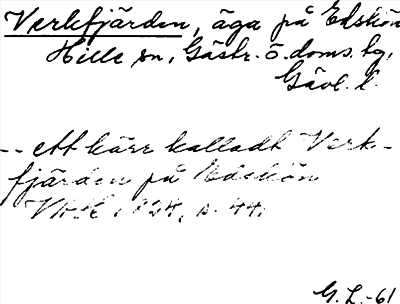 Verkfjärden, äga på Edskön
Hille sn, Gästr. ö. doms. hg,
Gävl. l.
-- ett kärr kalladt Verk-
fjärden på Edskön
s. 44.
G. L. -61